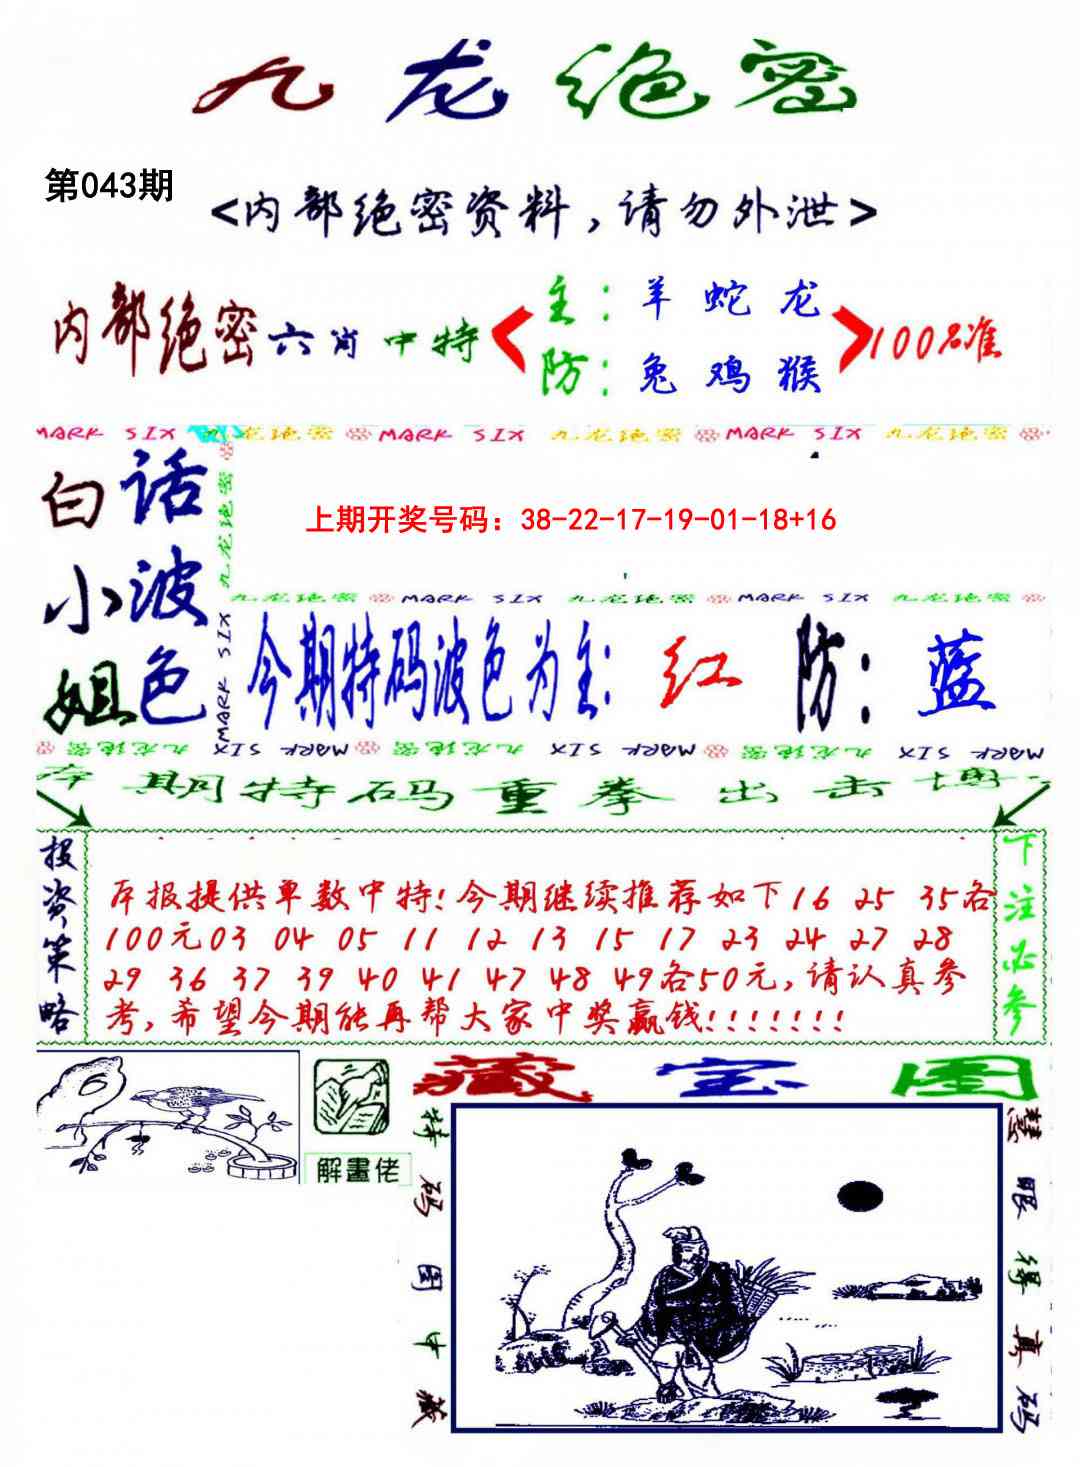 九龙绝密
第043期
<内部绝密资料,请勿外泄>
内部绝密六肖中特
主:羊 蛇 龙
防:兔 鸡 猴
100%准
MARK SIX 九龙绝密 MARK SIX 九龙绝密 MARK SIX 九龙绝密
白小姐
话波色
九龙绝密
MARK SIX
上期开奖号码：38-22-17-19-01-18+16
九龙绝密 MARK SIX 九龙绝密 MARK SIX 九龙绝密
今期特码波色为主:红 防:蓝
九龙绝密 MARK SIX 九龙绝密 MARK SIX 九龙绝密 MARK SIX
本期特码重拳出击博
投资策略
本报提供单数中特!今期继续推荐如下16 25 35各
100元03 04 05 11 12 13 15 17 23 24 27 28
29 36 37 39 40 41 47 48 49各50元,请认真参
考,希望今期能再帮大家中奖赢钱!!!!!!!
下注必参
解畫佬
藏宝图
特码图中藏
慧眼得真码